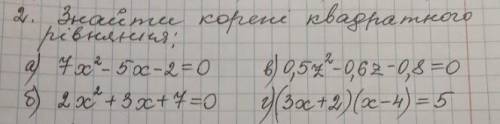 2. Знайти корені квадратного
рівняння;
а) 7x² - 5x - 2 = 0 в) 0,5z² - 0,6z - 0,8 = 0
б) 2x² + 3x + 7 = 0 г) (3x + 2)(x - 4) = 5